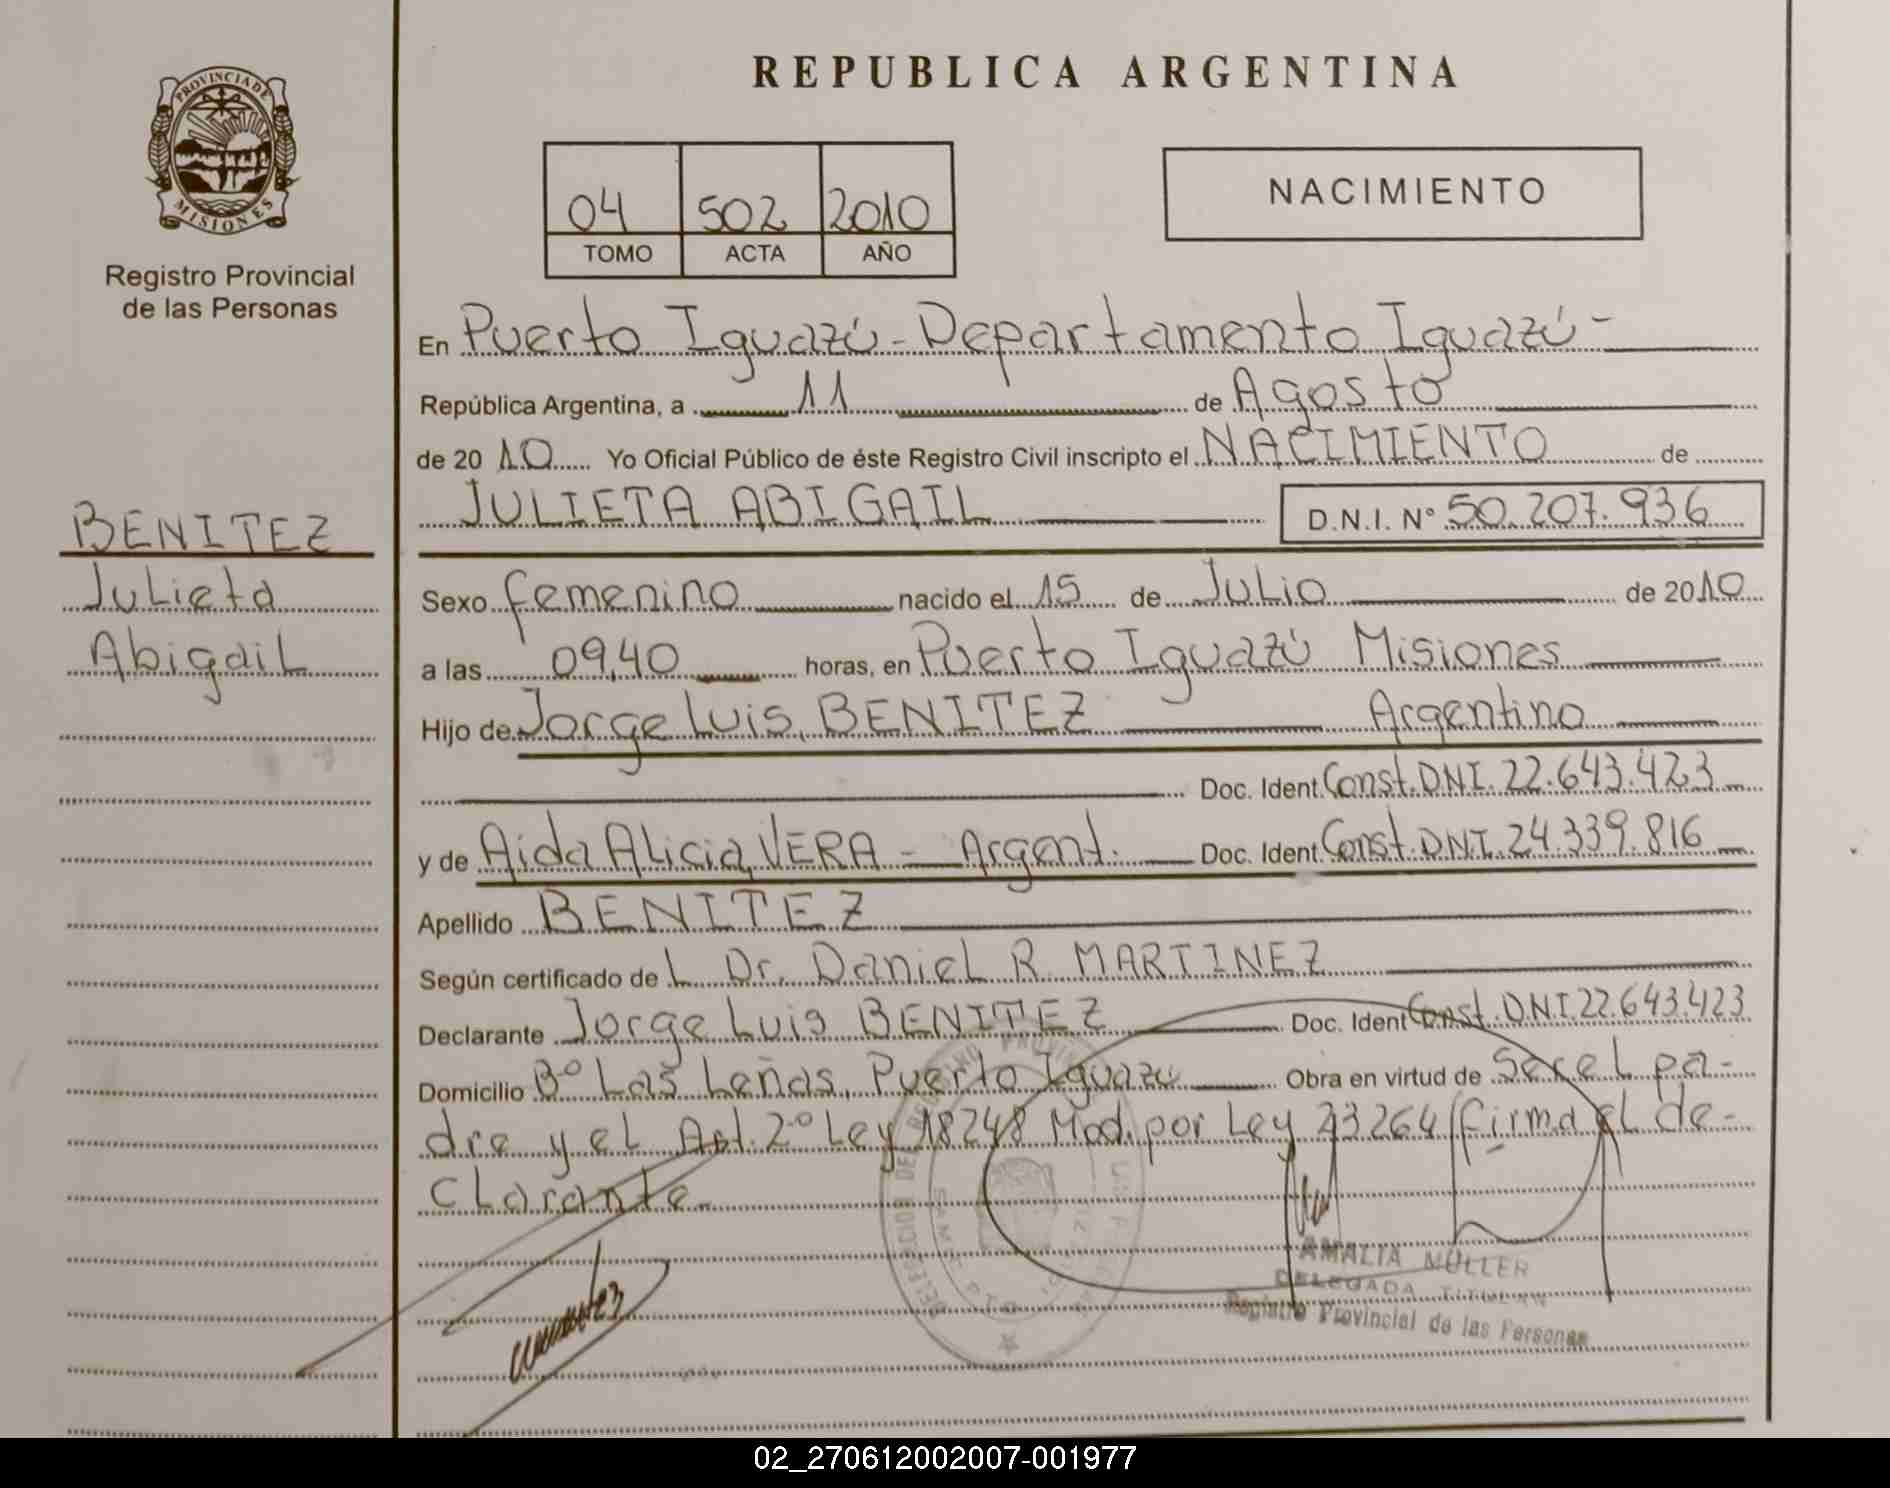 PROVINCIA DE
MISIONES
Registro Provincial
de las Personas
BENITEZ
Julieta
Abigail
REPUBLICA ARGENTINA
04 502 2010
TOMO ACTA AÑO
NACIMIENTO
En Puerto Iguazú - Departamento Iguazú -
República Argentina, a 11 de Agosto
de 20 10 Yo Oficial Público de éste Registro Civil inscripto el NACIMIENTO de
JULIETA ABIGAIL D.N.I. N° 50.207.936
Sexo femenino nacido el 15 de Julio de 2010
a las 09,40 horas, en Puerto Iguazú Misiones
Hijo de Jorge Luis, BENITEZ Argentino
Doc. Ident. Const. DNI. 22.643.423
y de Aida Alicia, VERA - Argent. Doc. Ident. Const. DNI. 24.339.816
Apellido BENITEZ
Según certificado de L Dr. Daniel R. MARTINEZ
Declarante Jorge Luis BENITEZ Doc. Ident Const. DNI 22.643.423
Domicilio B° Las Leñas, Puerto Iguazu Obra en virtud de ser el pa-
dre y el Art. 2° Ley 18248 Mod. por Ley 23264 firma el de-
clarante.
AMALIA MÜLLER
DELEGADA TITULAR
Registro Provincial de las Personas
02_270612002007-001977